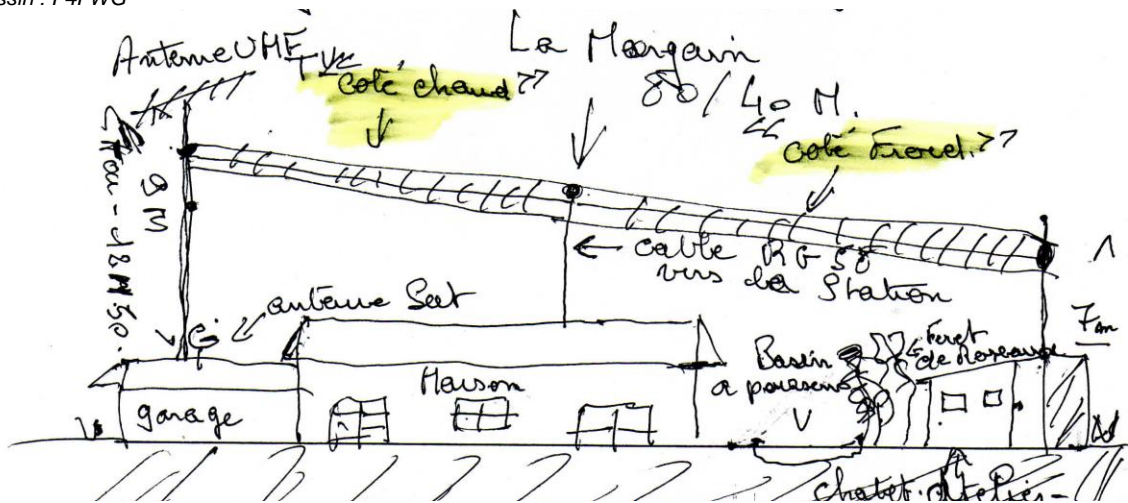 ssin : F4FWG
Antenne UHF
TV
La Morgain
80/40 M.
"coté chaud"
"coté Froid"
9 M
12M50.
cable RG58
vers la Station
antenne Sat
garage
Maison
Bassin
a poissons
Foret
de Roseaux
7m
chalet-Atelier-